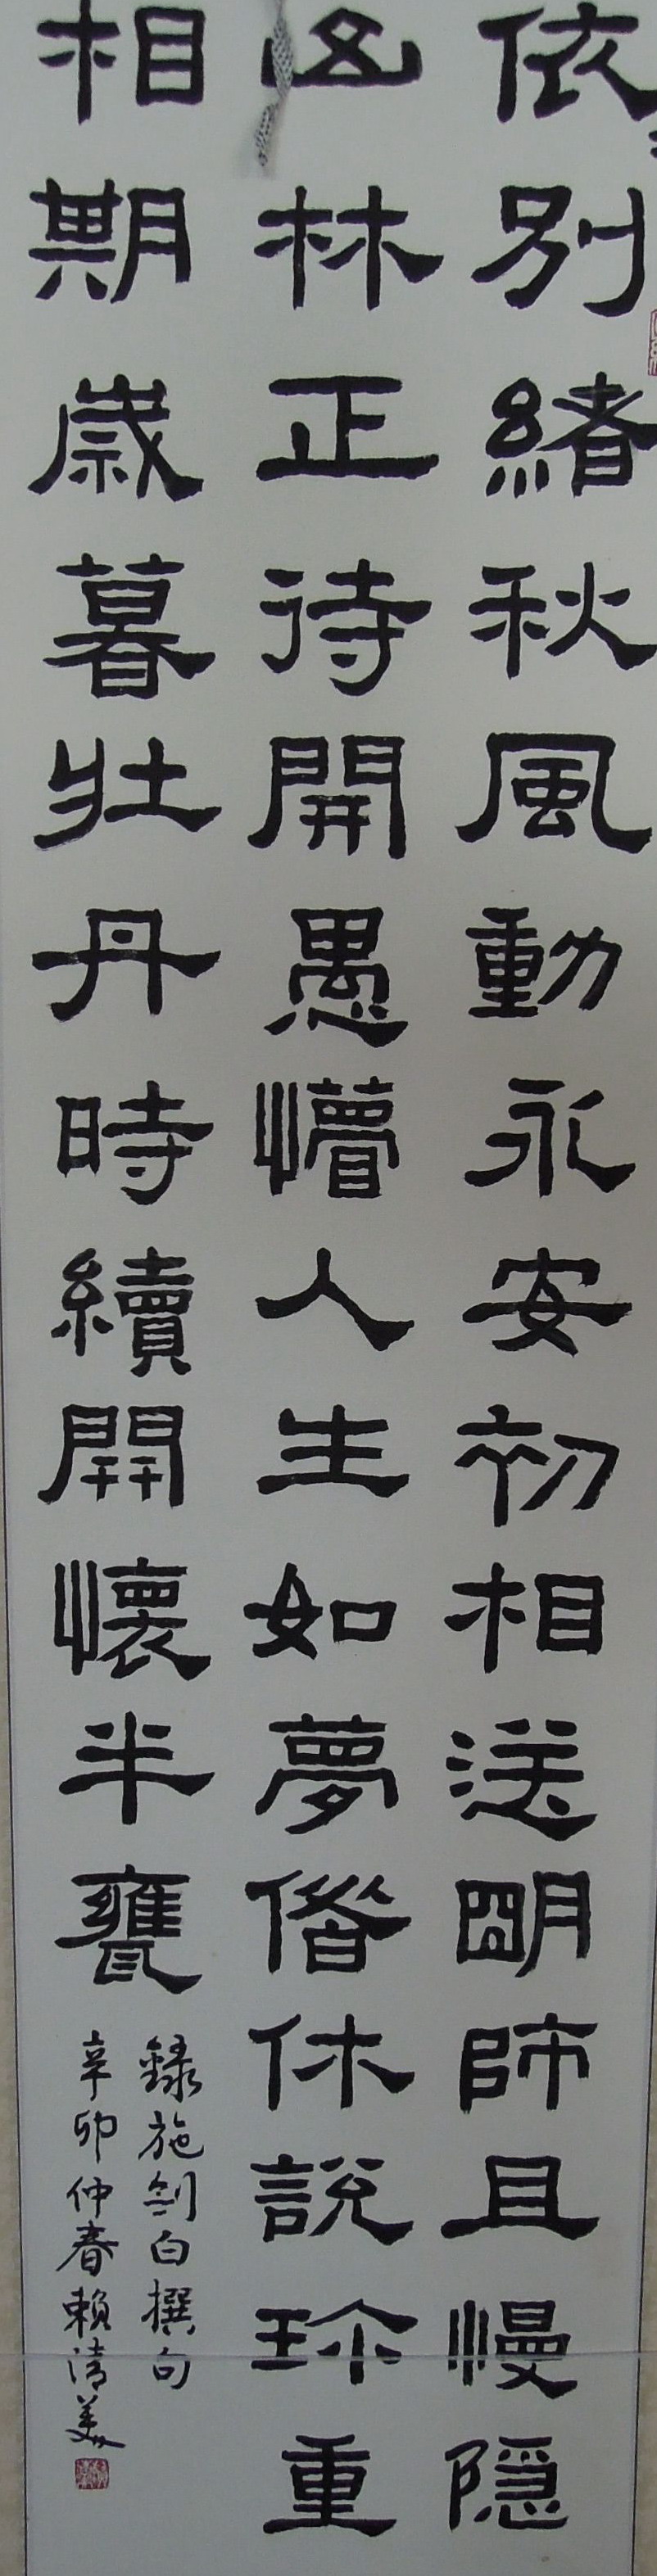 依別緒秋風動永安初相送朙師且慢隱
山林正待開愚懵人生如夢偺休說珎重
相期歲暮牡丹時續開懷半甕
錄施劍白撰句
辛卯仲春賴清美